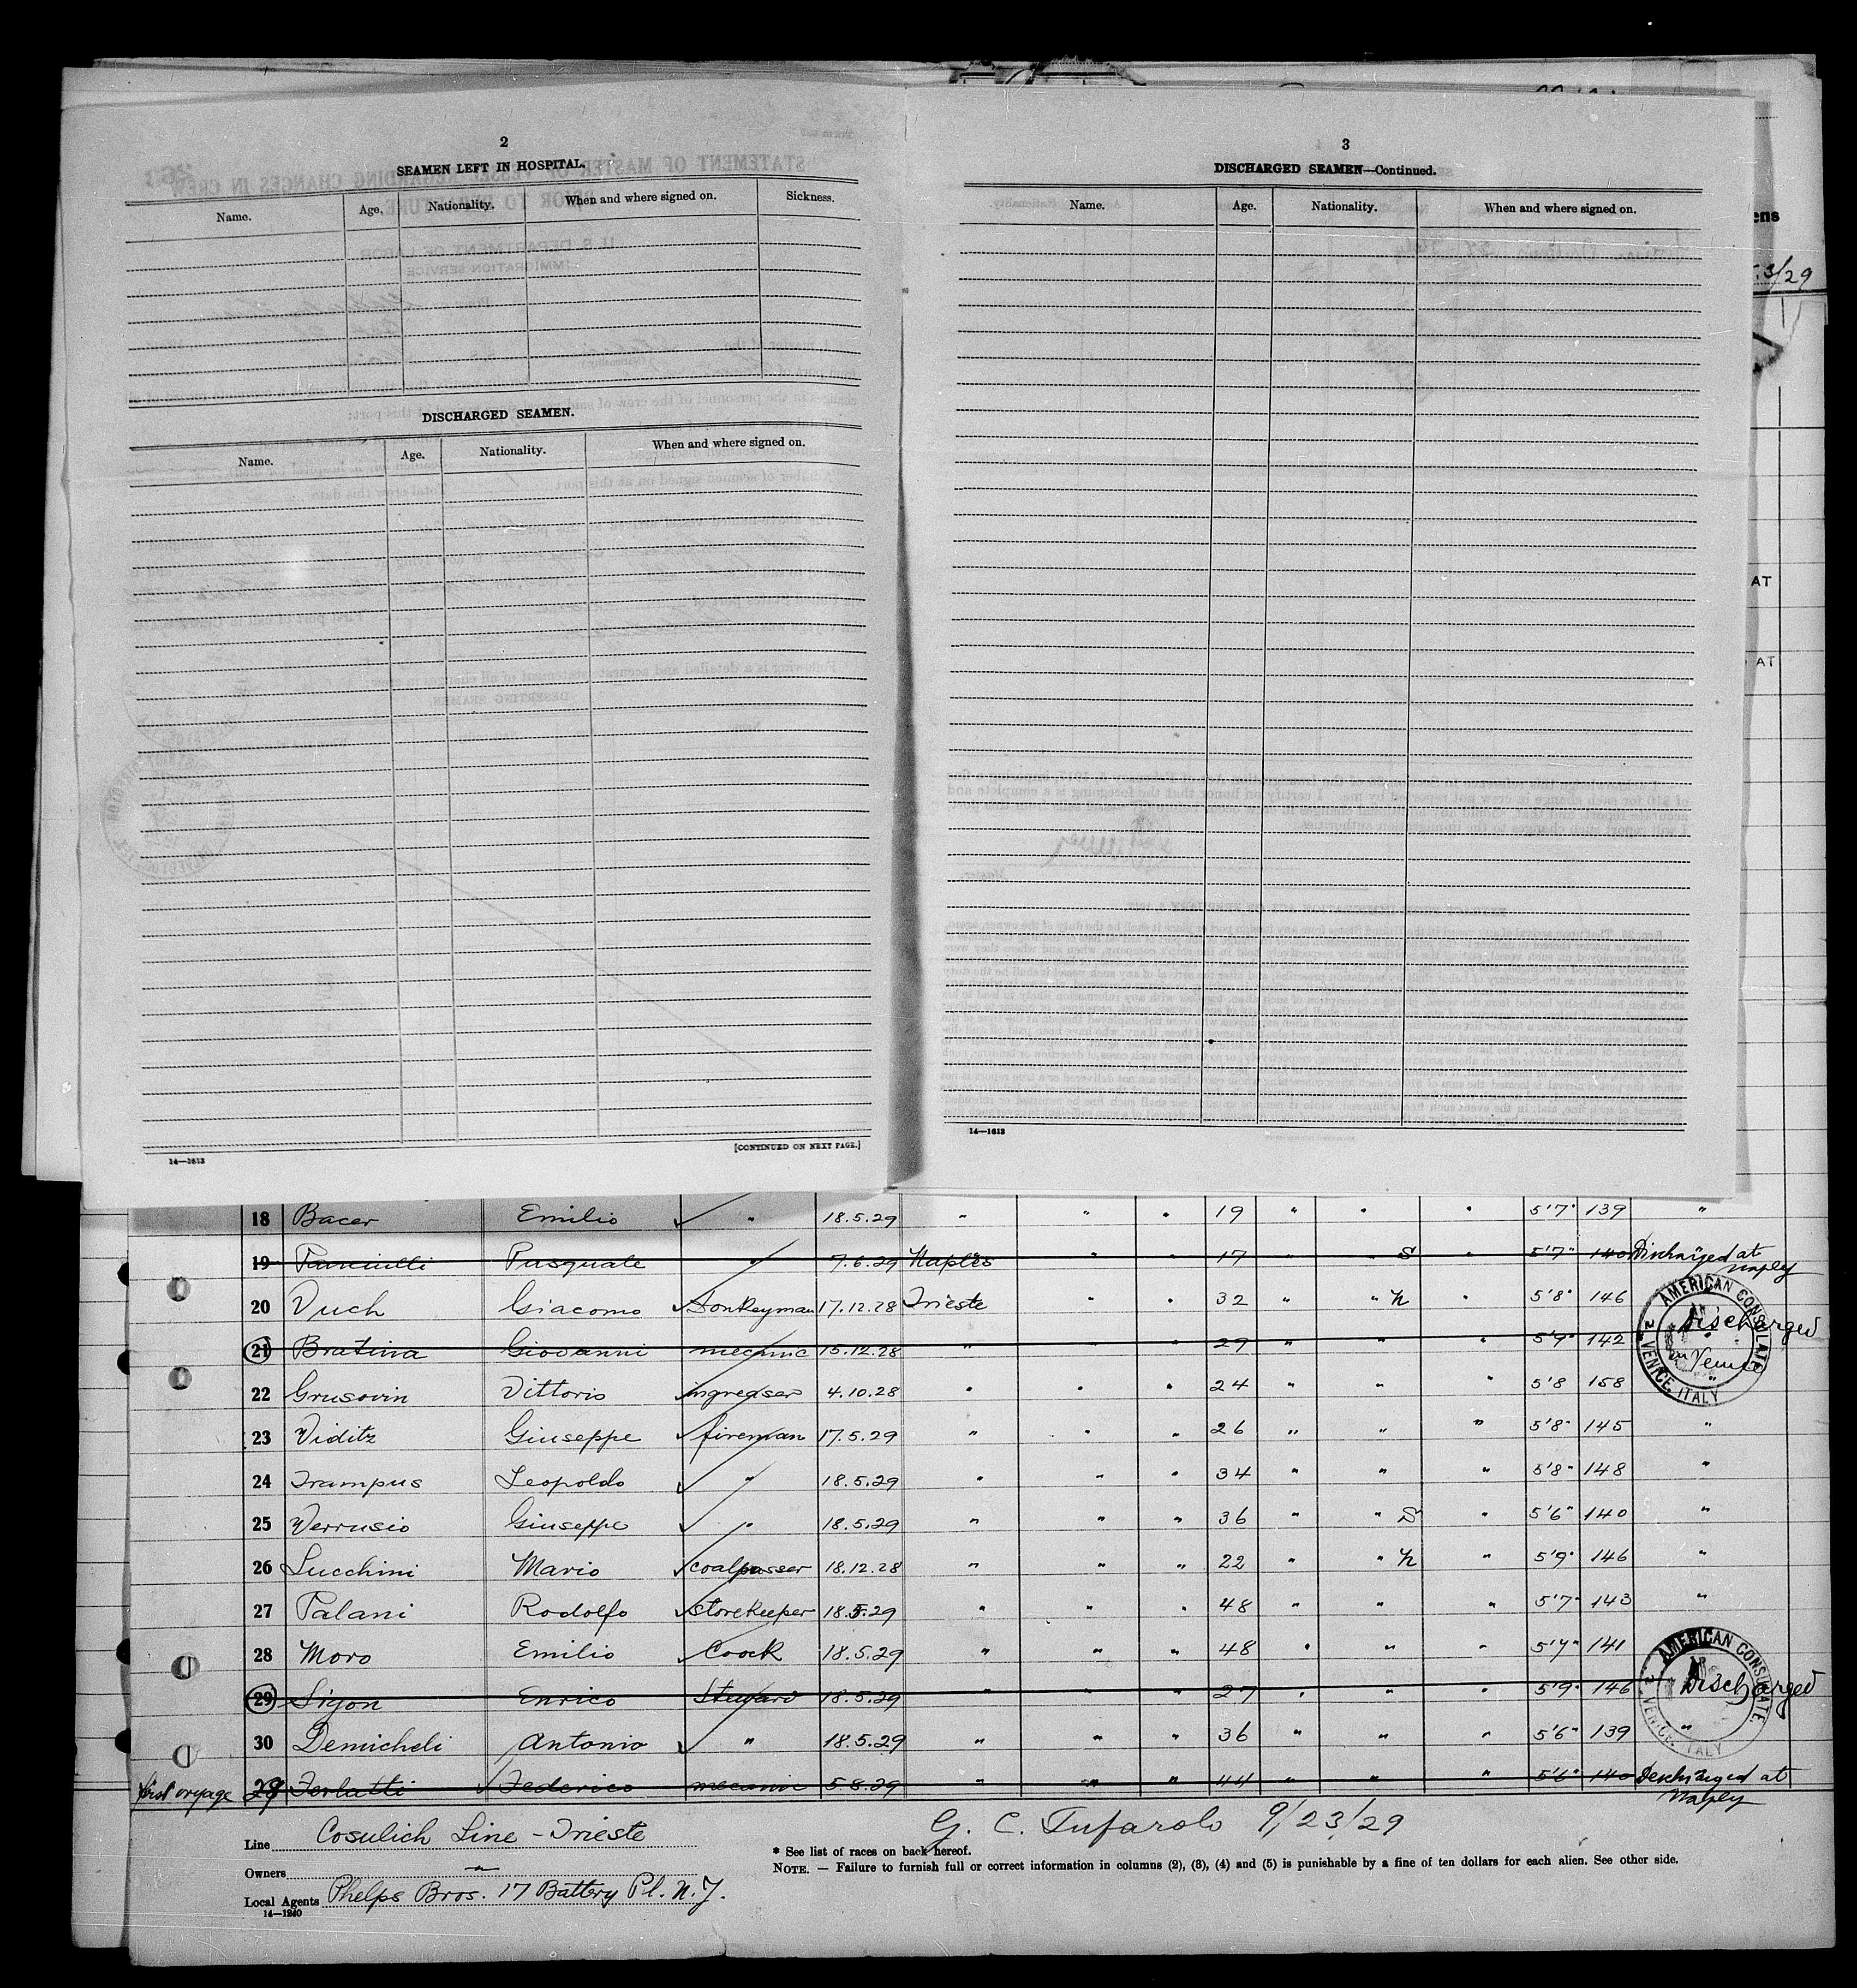 2
SEAMEN LEFT IN HOSPITAL.
Name. Age. Nationality. When and where signed on. Sickness.
DISCHARGED SEAMEN.
Name. Age. Nationality. When and where signed on.
[CONTINUED ON NEXT PAGE.]
14—1613
3
DISCHARGED SEAMEN—Continued.
Name. Age. Nationality. When and where signed on.
14—1613
ens
3/29
AT
AT
18 Bacer Emilio " 18.5.29 " " " 19 " " " 5'7" 139 "
19 Pasquale " 7.6.29 Naples " " 17 " " S " 5'7" 140 Discharged at
Naples
20 Vuch Giacomo Donkeyman 17.12.28 Trieste " " 32 " " N " 5'8" 146
AMERICAN CONSULATE
VENICE, ITALY
Discharged
in Venice
21 Bratina Giovanni mecanic 15.12.28 " " " 29 " " " 5'9" 142 "
22 Grusovin Vittorio ingreaser 4.10.28 " " " 24 " " " 5'8 158 "
23 Viditz Giuseppe fireman 17.5.29 " " " 26 " " " 5'8" 145 "
24 Trampus Leopoldo " 18.5.29 " " " 34 " " " 5'8" 148 "
25 Verrusio Giuseppe " 18.5.29 " " " 36 " " S " 5'6" 140 "
26 Lucchini Mario coalpasser 18.12.28 " " " 22 " " N " 5'9" 146 "
27 Palani Rodolfo storekeeper 18.5.29 " " " 48 " " " 5'7" 143 "
28 Moro Emilio Coock 18.5.29 " " " 48 " " " 5'7" 141
AMERICAN CONSULATE
VENICE, ITALY
29 Sigon Enrico Steward 18.5.29 " " " 27 " " " 5'9" 146 Discharged
30 Demicheli Antonio " 18.5.29 " " " 36 " " " 5'6" 139 "
first voyage 29 Ferlatti Federico mecanic 5.8.29 " " " 44 " " " 5'6" 140 Discharged at
Naples
Line Cosulich Line - Trieste
G. C. Tufarolo 9/23/29
* See list of races on back hereof.
Owners "
NOTE. — Failure to furnish full or correct information in columns (2), (3), (4) and (5) is punishable by a fine of ten dollars for each alien. See other side.
Local Agents Phelps Bros. 17 Battery Pl. N.Y.
14—1240